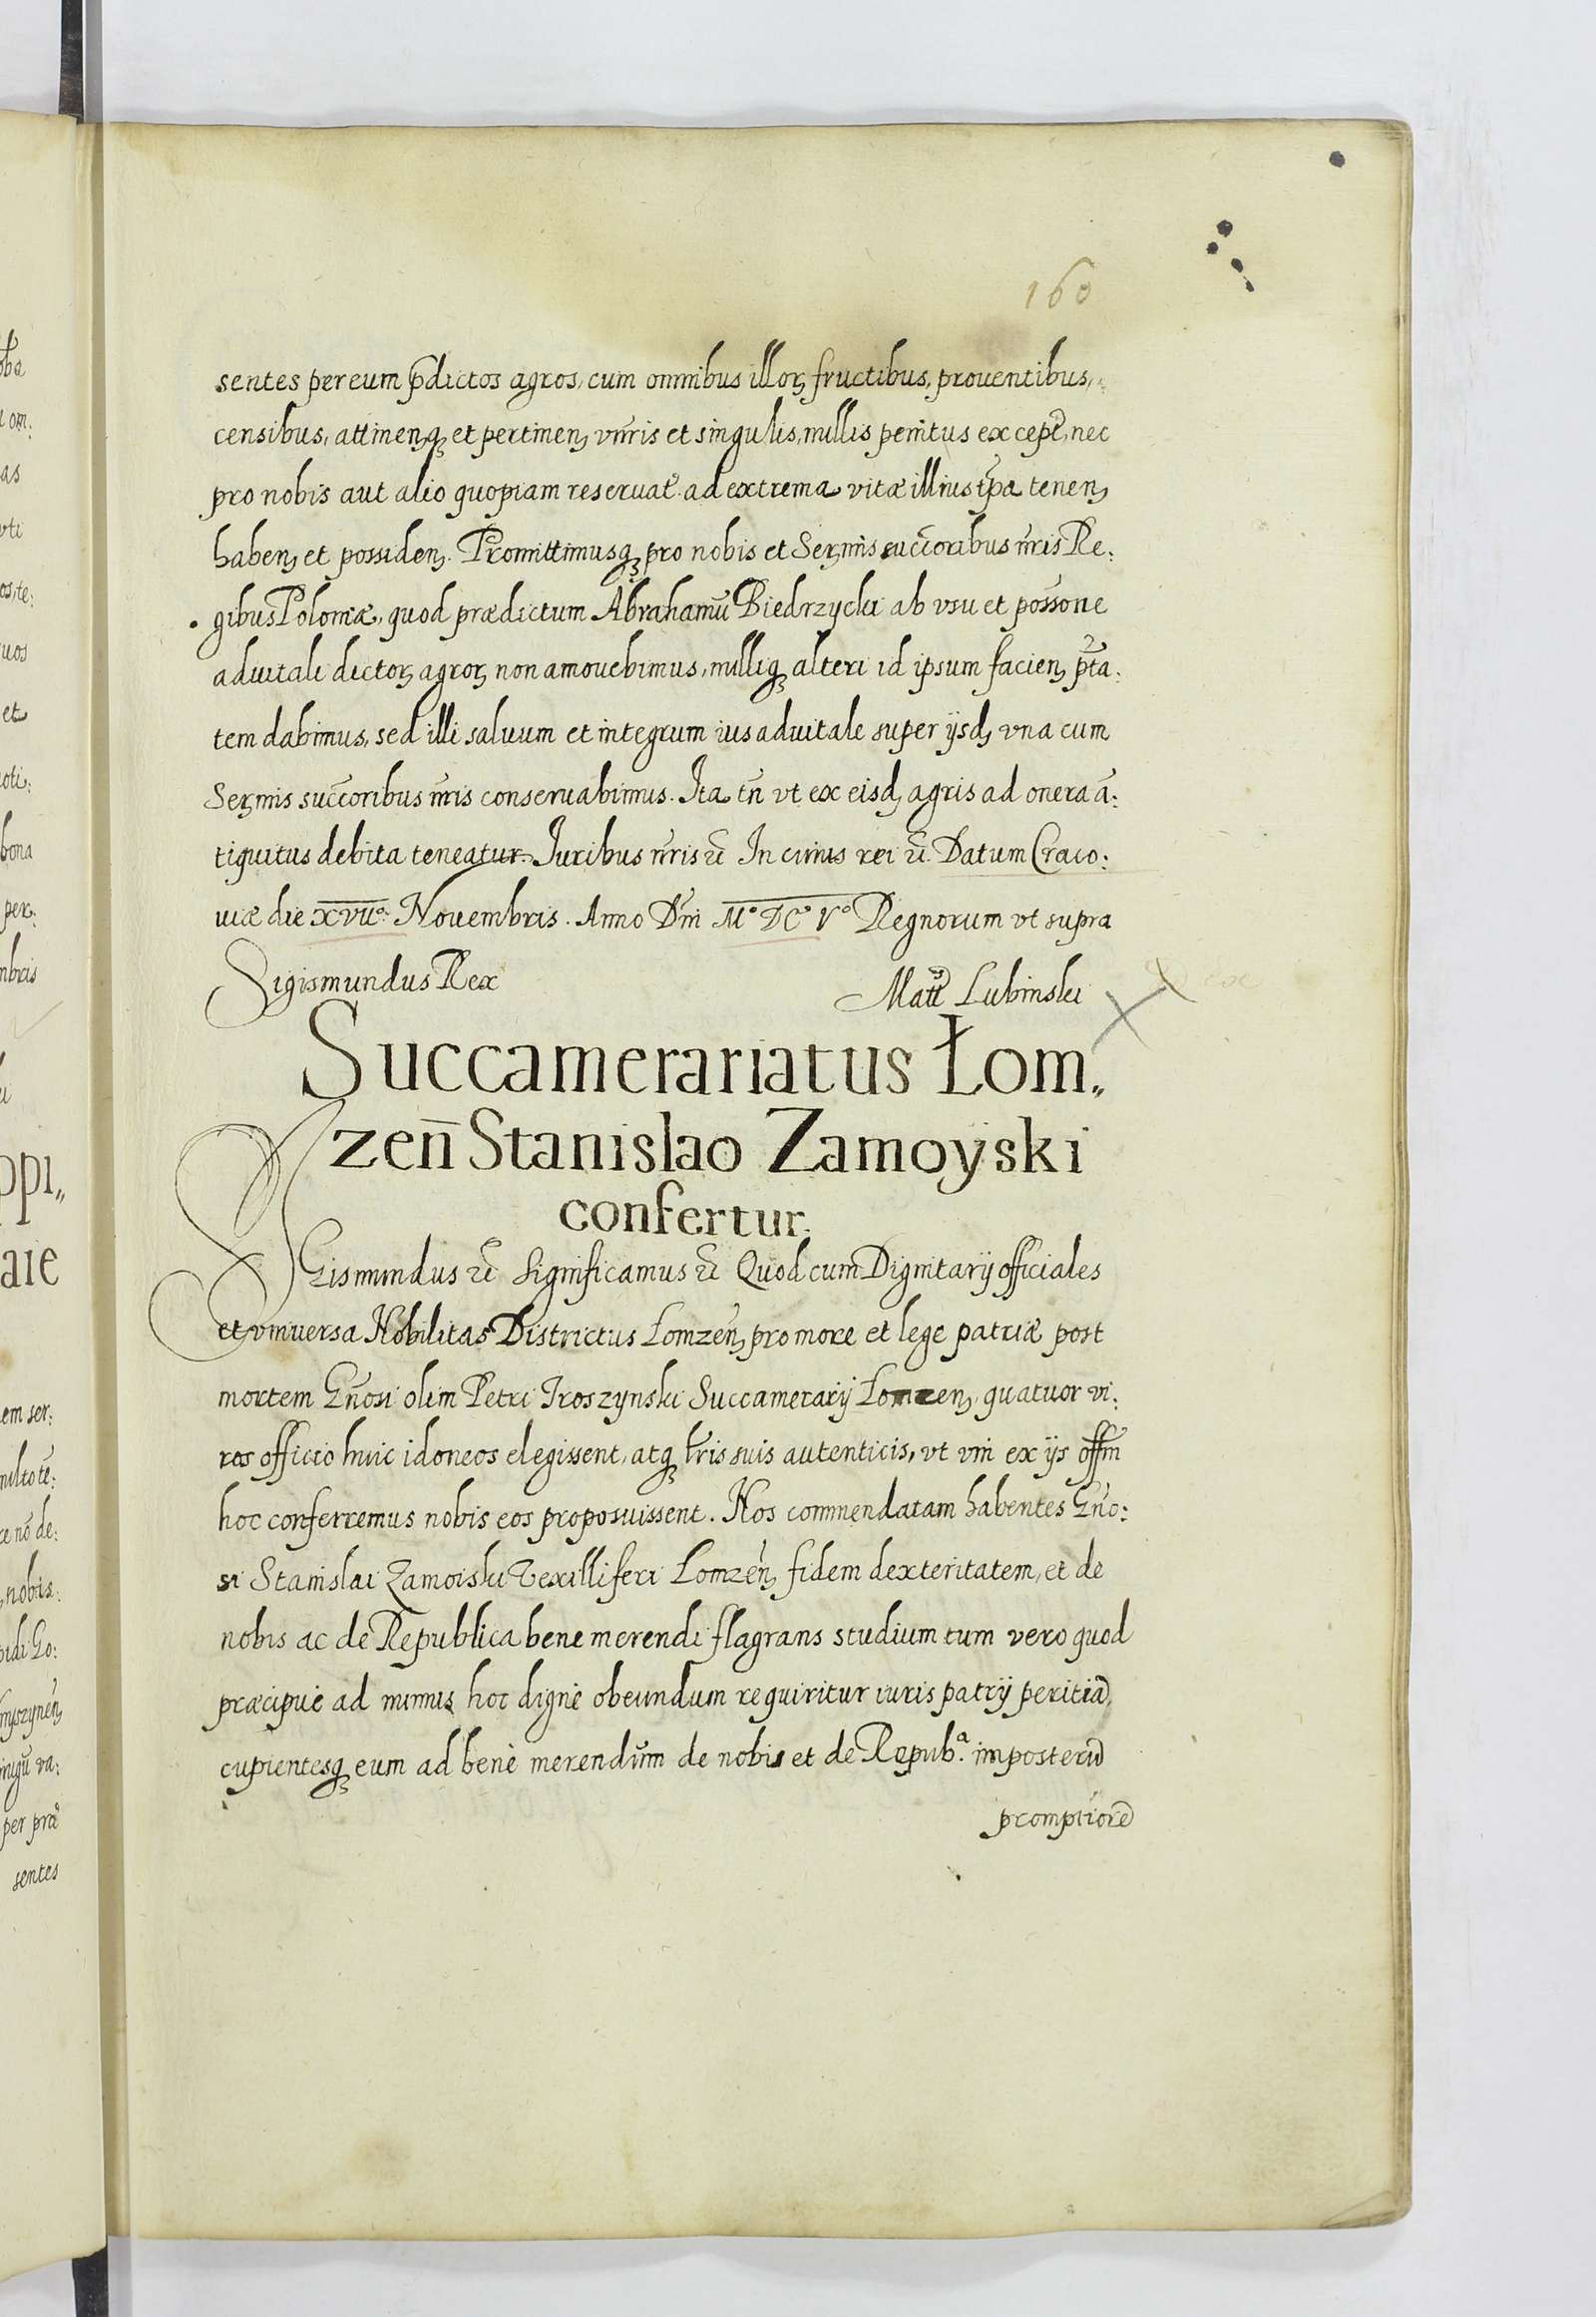 160
sentes per eum p̄dictos agros, cum omnibus illoꝝ fructibus, prouentibus,
censibus, attinenꝗ et pertinen, vnīris et singulis, nullis penitus except̄, nec
pro nobis aut alio quopiam reseruat̄ ad extrema vitæ illius tp̄a tenen,
haben, et possiden. Promittimusꝗ pro nobis et Serꝫmis succ̄oribus nr̄is Re:
gibus Poloniæ, quod prædictum Abrahamū Biedrzycki ab vsu et poss̄one
aduitali dictoꝝ agroꝝ non amouebimus, nulliꝗ alteri id ipsum facien, p̄ta:
tem dabimus, sed illi saluum et integrum ius aduitale super ijsd, vna cum
Serꝫmis succ̄oribus nr̄is conseruabimus. Ita tn̄ vt ex eisd, agris ad onera ā:
tiquitus debita teneatur. Iuribus nr̄is ꝛc̄ In cuius rei ꝛc̄. Datum Craco:
uiæ die XVIIº. Nouembris. Anno Dn̄i Mº DCº Vº Regnorum vt supra
Sigismundus Rex Matt̄s Lubinski
Succamerariatus Łom„
zen̄ Stanislao Zamoyski
confertur.
SIGismundus ꝛc̄ Significamus ꝛc̄ Quod cum Dignitarij officiales
et vniuersa Nobilitas Districtus Lomzen̄, pro more et lege patriæ post
mortem Gn̄osi olim Petri Troszynski Succamerarij Lomzen, quatuor vi:
ros officio huic idoneos elegissent, atꝗ lr̄is suis autenticis, vt vni ex ijs off̄m
hoc conferremus nobis eos proposuissent. Nos commendatam habentes Gn̄o:
si Stanislai Zamoiski Vexilliferi Lomzen̄, fidem dexteritatem, et de
nobis ac de Republica bene merendi flagrans studium tum vero quod
præcipue ad munus hoc dignè obeundum requiritur iuris patrij peritiā,
cupientesꝗ eum ad benè merendum de nobis et de Repub.ª imposterū
promptiorē